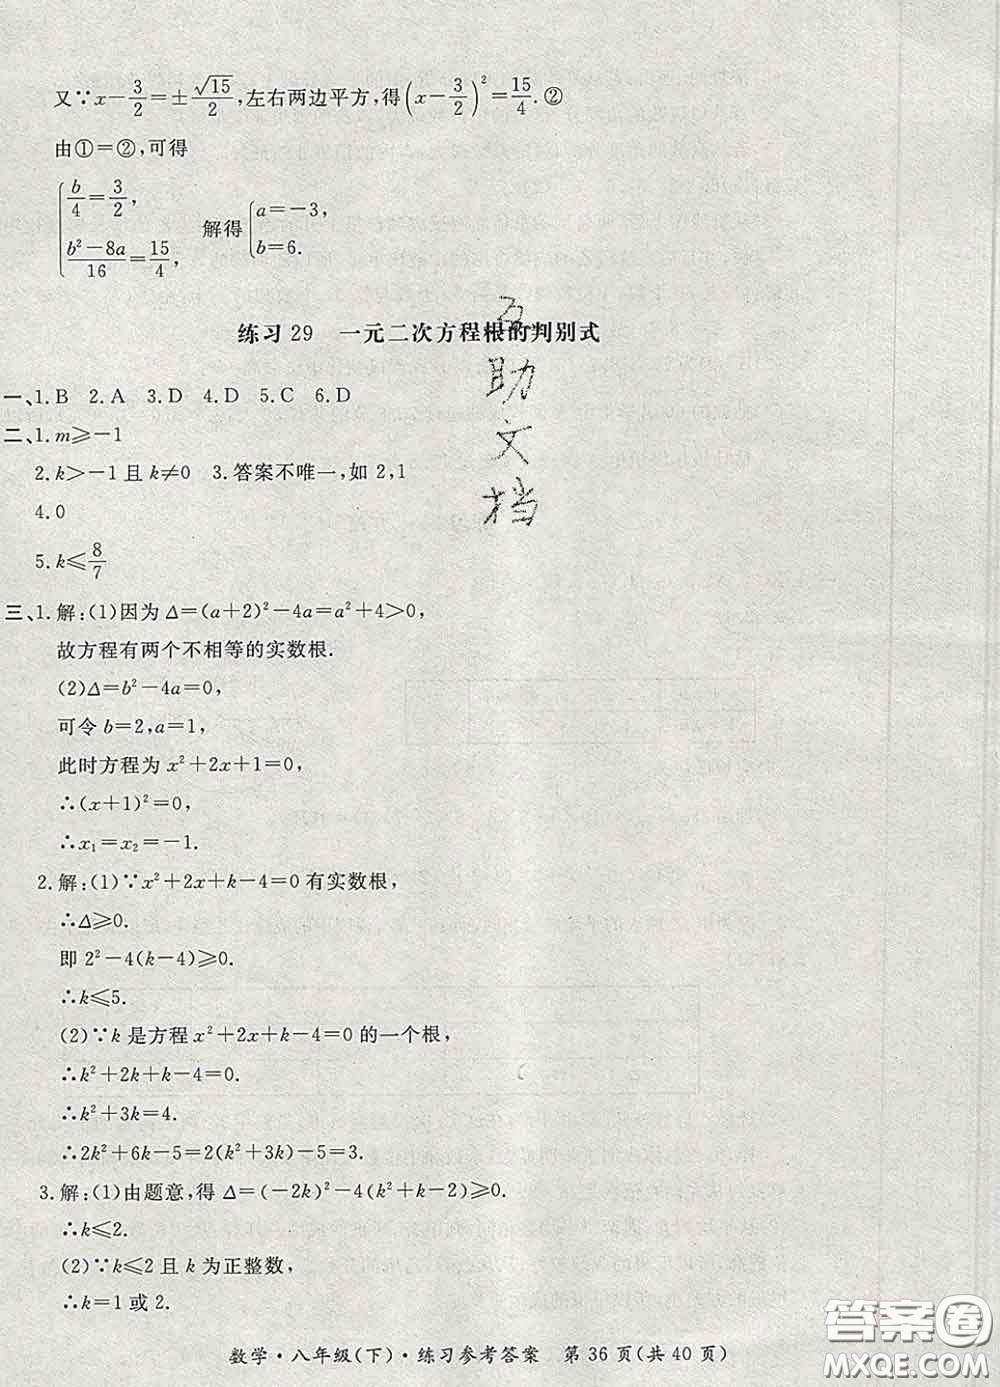 又∵x−3/2=±√15/2,左右两边平方,得(x−3/2)²=15/4.②
由①=②,可得
{b/4=3/2, (b²−8a)/16=15/4, 解得{a=−3, b=6.
练习29 一元二次方程根的判别式
一、1.B 2.A 3.D 4.D 5.C 6.D
二、1.m⩾−1
2.k>−1且k≠0 3.答案不唯一,如2,1
4.0
5.k⩽8/7
三、1.解:(1)因为Δ=(a+2)²−4a=a²+4>0,
故方程有两个不相等的实数根.
(2)Δ=b²−4a=0,
可令b=2,a=1,
此时方程为x²+2x+1=0,
∴(x+1)²=0,
∴x₁=x₂=−1.
2.解:(1)∵x²+2x+k−4=0有实数根,
∴Δ⩾0.
即2²−4(k−4)⩾0.
∴k⩽5.
(2)∵k是方程x²+2x+k−4=0的一个根,
∴k²+2k+k−4=0.
∴k²+3k=4.
∴2k²+6k−5=2(k²+3k)−5=3.
3.解:(1)由题意,得Δ=(−2k)²−4(k²+k−2)⩾0.
∴k⩽2.
(2)∵k⩽2且k为正整数,
∴k=1或2.
数学·八年级(下)·练习参考答案 第36页(共40页)
助
文
档
答案圈
MXQE.COM